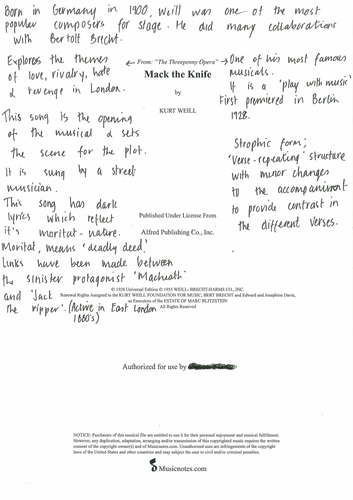 Born in Germany in 1900, Weill was one of the most
popular composers for stage. He did many collaborations
with Bertolt Brecht.
Explores the themes
of love, rivalry, hate
& revenge in London.
← From: "The Threepenny Opera" →
Mack the Knife
by
KURT WEILL
One of his most famous
musicals.
It is a 'play with music'
First premiered in Berlin
1928.
This song is the opening
of the musical & sets
the scene for the plot.
It is sung by a street
musician.
This song has dark
lyrics which reflect
it's moritat-nature.
Moritat, means 'deadly deed'.
Links have been made between
the sinister protagonist 'Macheath'
and 'Jack
the ripper'. (Active in East London
1880's)
Strophic form;
'Verse-repeating' structure
with minor changes
to the accompaniment
to provide contrast in
the different verses.
Published Under License From
Alfred Publishing Co., Inc.
© 1928 Universal Edition © 1955 WEILL- BRECHT-HARMS CO., INC.
Renewal Rights Assigned to the KURT WEILL FOUNDATION FOR MUSIC, BERT BRECHT and Edward and Josephine Davis,
as Executors of the ESTATE OF MARC BLITZSTEIN
All Rights Reserved
Authorized for use by
NOTICE: Purchasers of this musical file are entitled to use it for their personal enjoyment and musical fulfillment.
However, any duplication, adaptation, arranging and/or transmission of this copyrighted music requires the written
consent of the copyright owner(s) and of Musicnotes.com. Unauthorized uses are infringements of the copyright
laws of the United States and other countries and may subject the user to civil and/or criminal penalties.
Musicnotes.com